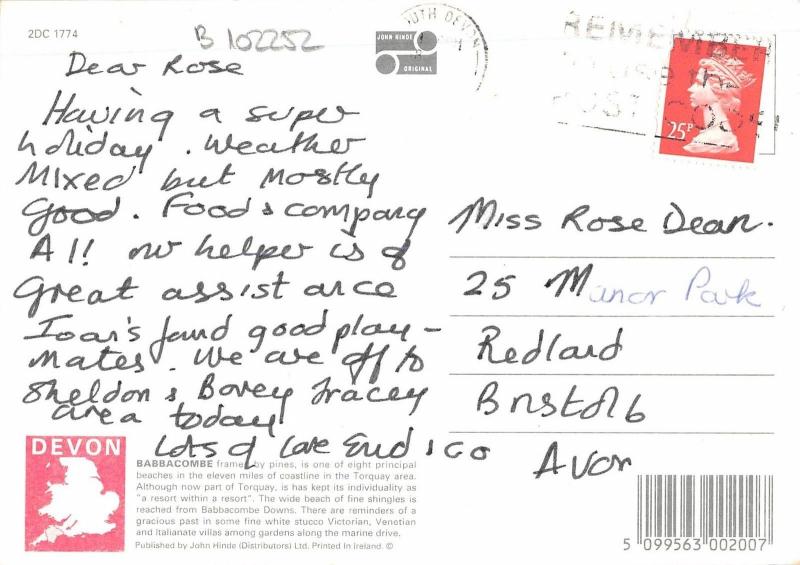 2DC 1774
B 102252
JOHN HINDE
ORIGINAL
SOUTH DEVON
REMEMBER
POST CODE
25P
Dear Rose
Having a super
holiday. Weather
Mixed but Mostly
Good. Food & company
A1! helper is of
Great assistance
found good play-
Mates. We are off to
Sheldon & Bovey Tracey
area today
Lots of love Enid & Co
Miss Rose Dean.
25 Manor Park
Redland
Bristol 6
Avon
DEVON
BABBACOMBE framed by pines, is one of eight principal
beaches in the eleven miles of coastline in the Torquay area.
Although now part of Torquay, is has kept its individuality as
"a resort within a resort". The wide beach of fine shingles is
reached from Babbacombe Downs. There are reminders of a
gracious past in some fine white stucco Victorian, Venetian
and Italianate villas among gardens along the marine drive.
Published by John Hinde (Distributors) Ltd. Printed In Ireland. ©
5 099563 002007